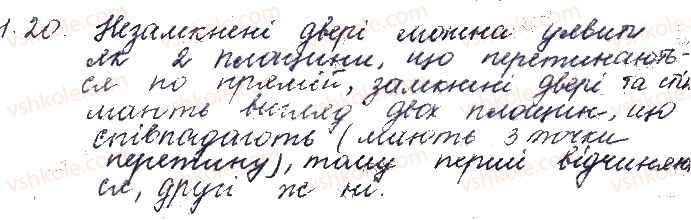 1.20. Незамкнені двері можна уявити
як 2 площини, що перетинають-
ся по прямій, замкнені двері та стін
мають вигляд двох площин, що
співпадають (мають 3 точки
перетину), тому перші відчиняю
ся, другі ж ні.